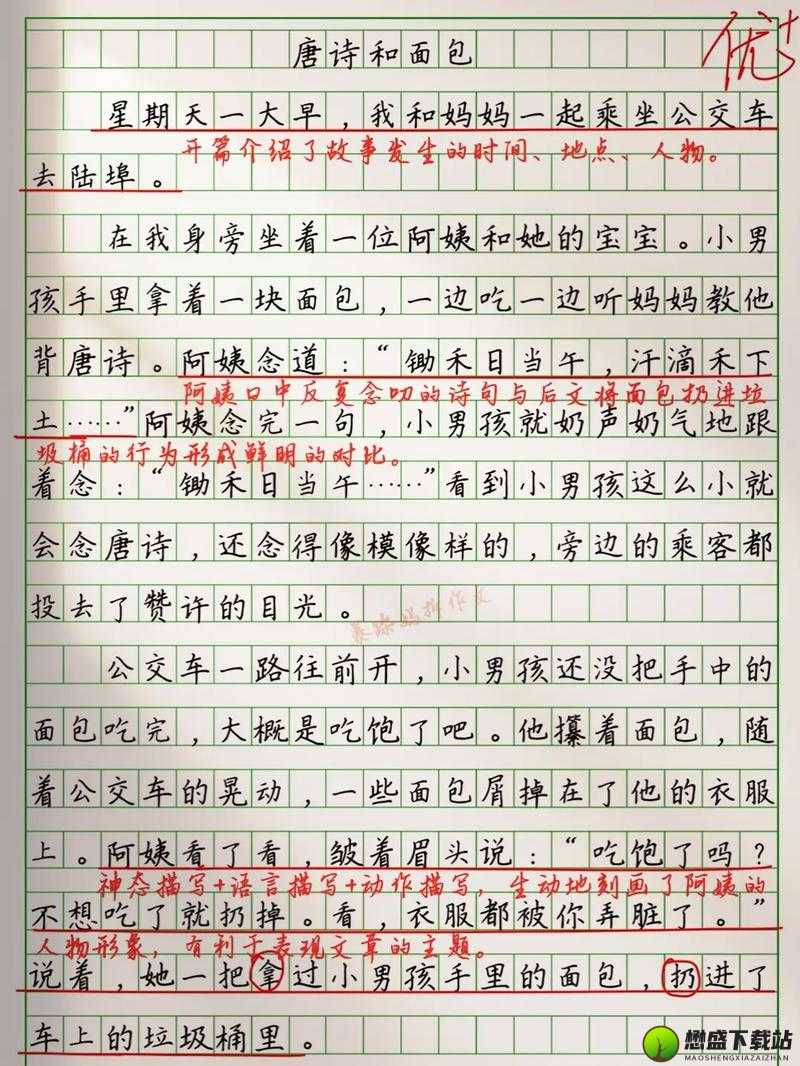 优+
唐诗和面包
星期天一大早，我和妈妈一起乘坐公交车
开篇介绍了故事发生的时间、地点、人物。
去陆埠。
在我身旁坐着一位阿姨和她的宝宝。小男
孩手里拿着一块面包，一边吃一边听妈妈教他
背唐诗。阿姨念道：“锄禾日当午，汗滴禾下
阿姨口中反复念叨的诗句与后文将面包扔进垃
土……”阿姨念完一句，小男孩就奶声奶气地跟
圾桶的行为形成鲜明的对比。
着念：“锄禾日当午……”看到小男孩这么小就
会念唐诗，还念得像模像样的，旁边的乘客都
投去了赞许的目光。
暴躁妈拆作文
公交车一路往前开，小男孩还没把手中的
面包吃完，大概是吃饱了吧。他攥着面包，随
着公交车的晃动，一些面包屑掉在了他的衣服
上。阿姨看了看，皱着眉头说：“吃饱了吗？
神态描写+语言描写+动作描写，生动地刻画了阿姨的
不想吃了就扔掉。看，衣服都被你弄脏了。”
人物形象，有利于表现文章的主题。
说着，她一把拿过小男孩手里的面包，扔进了
车上的垃圾桶里。
懋盛下载站
MAOSHENGXIAZAIZHAN